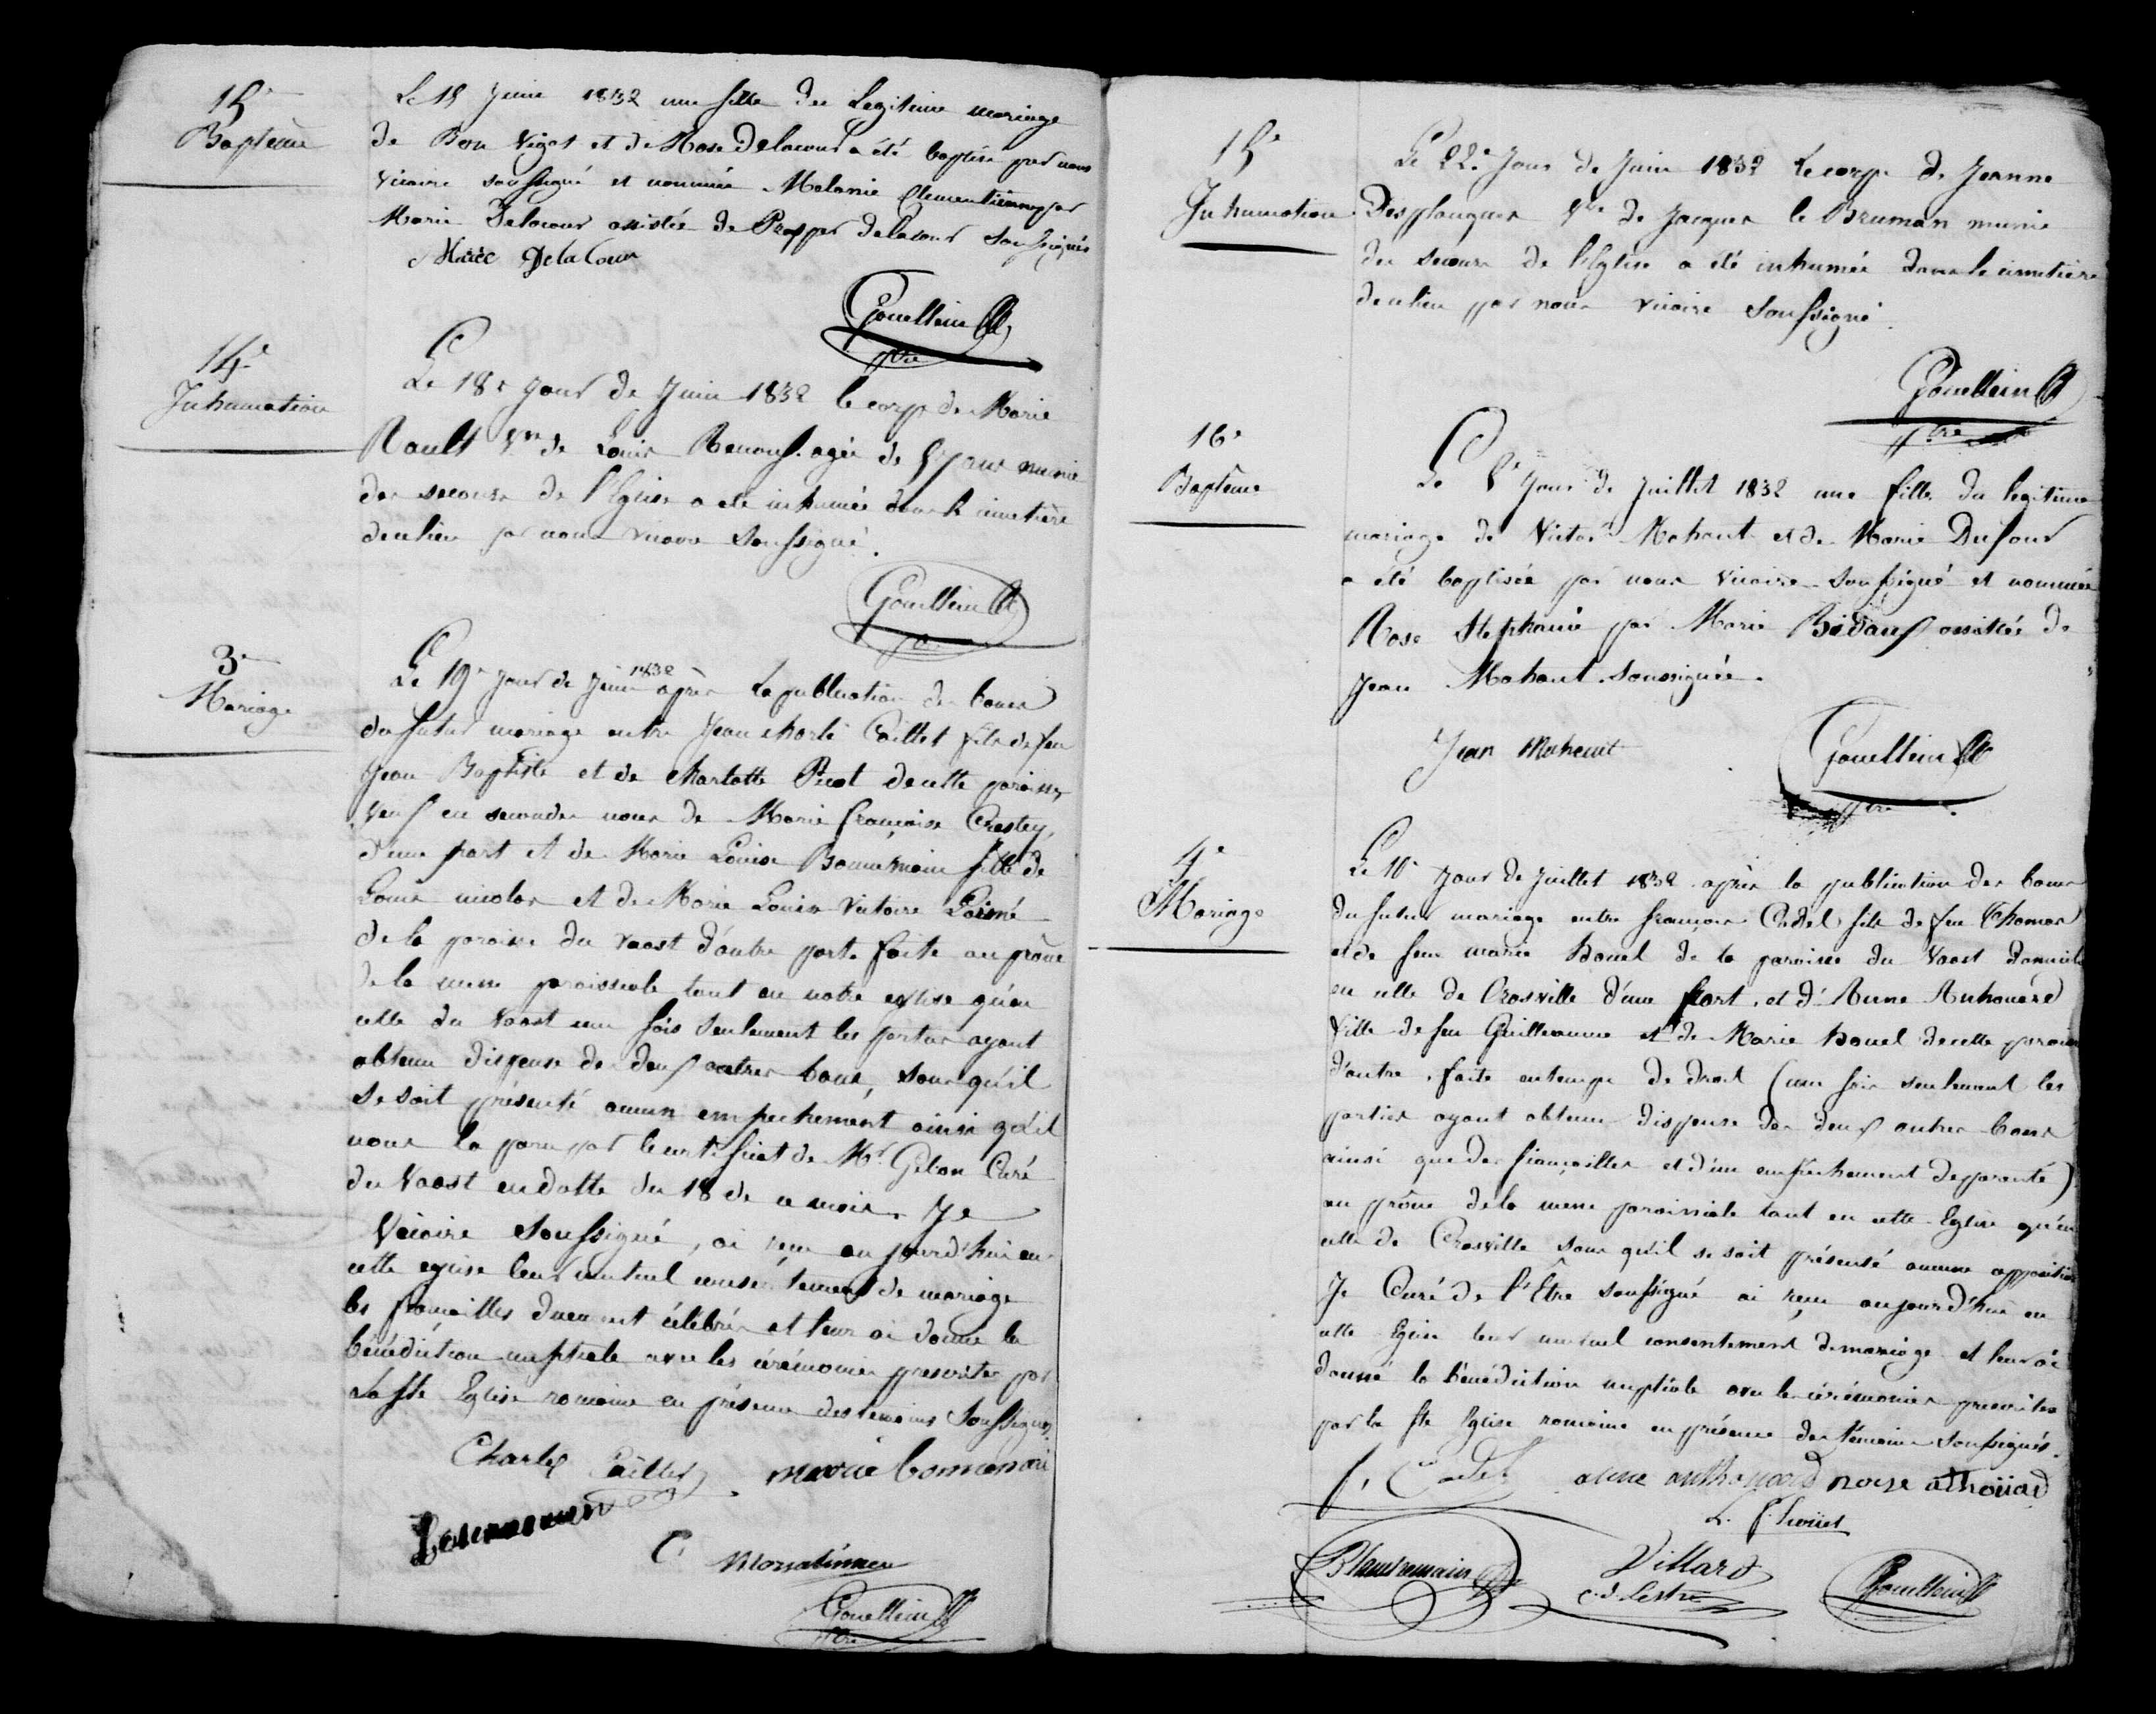 15e
Baptême
Le 15 Juin 1832 une fille du Legitime mariage
de Bon Vigot et de Rose Delacour a été baptisé par nous
vicaire soussigné et nommée Melanie Clementienne par
Marie Delacour assistée de Prosper delacour soussignés
Marie De la Cour
Gouellain
ptre
14e
Inhumation
Le 18e Jour de Juin 1832 le corp de Marie
Rault Vve de Louis Renouf agée de ans munie
des secours de l'Eglise a été inhumée dans le cimetière
de ce lieu par nous vicaire soussigné.
Gouellain
ptre
3e
Mariage
Le 19e Jour de Juin 1832 après la publication des bans
du futur mariage entre Jean charle Caillet fils de feu
Jean Baptiste et de charlotte Picot de cette paroisse
veuf en secondes noces de Marie françoise Crestey,
d'une part et de Marie Louise Bonnemain fille de
Louis nicolas et de Marie Louise Victoire
de la paroisse du vaast d'autre part. faite au prône
de la messe paroissiale tant en notre eglise qu'en
celle du Vaast une fois seulement les parties ayant
obtenu dispense de deux autres bans, sans qu'il
se soit présenté aucun empechement ainsi qu'il
nous la paru par le certificat de Mr Curé
du Vaast en datte du 18 de ce mois. Je
Vicaire soussigné, ai reçu aujourd'hui en
cette eglise leur mutuel consentement de mariage
les fiançailles duement célébrés et leur ai donné la
bénédiction nuptiale avec les cérémonies prescrites par
La Ste Eglise romaine en présence des temoins soussignés.
Charles Caillet marie bonnemain
C.
Gouellain
ptre
15e
Inhumation
Le 22e Jour de Juin 1832 Le corp de Jeanne
Desplanques Vve de Jacques le Bruman munie
des secours de l'Eglise a été inhumée dans le cimetière
de ce lieu par nous vicaire soussigné.
Gouellain
ptre
16e
Baptême
Le Jour de Juillet 1832 une fille du legitime
mariage de Victor Mahaut et de Marie Dufour
a été baptisée par nous vicaire soussigné et nommée
Rose Stephanie par Marie assistée de
Jean Mahaut soussignée.
Jean Mahaut
Gouellain
ptre
4e
Mariage
Le 10e Jour de Juillet 1832 après la publication des bans
du futur mariage entre françois Cadel fils de feu Thomas
et de feue marie houel de la paroisse du Vaast domicilié
en celle de Crosville d'une part, et d'Anne Anthouard
fille de feu Guillaume et de Marie houel de cette paroisse
d'autre, faite en temps de droit (une fois seulement les
parties ayant obtenu dispense de deux autres bans
ainsi que des fiançailles et d'un empêchement de parenté)
au prône de la messe paroissiale tant en cette Eglise qu'en
celle de Crosville sans qu'il se soit présenté aucune opposition
Je Curé de l'Etre soussigné ai reçu aujourd'hui en
cette Eglise leur mutuel consentement de mariage et leur ai
donné la bénédiction nuptiale avec les cérémonies prescrites
par la Ste Eglise romaine en présence des témoins soussignés.
f. Cadel anne anthouard rose athoüard
Villard
c. d. Lestre
Gouellain